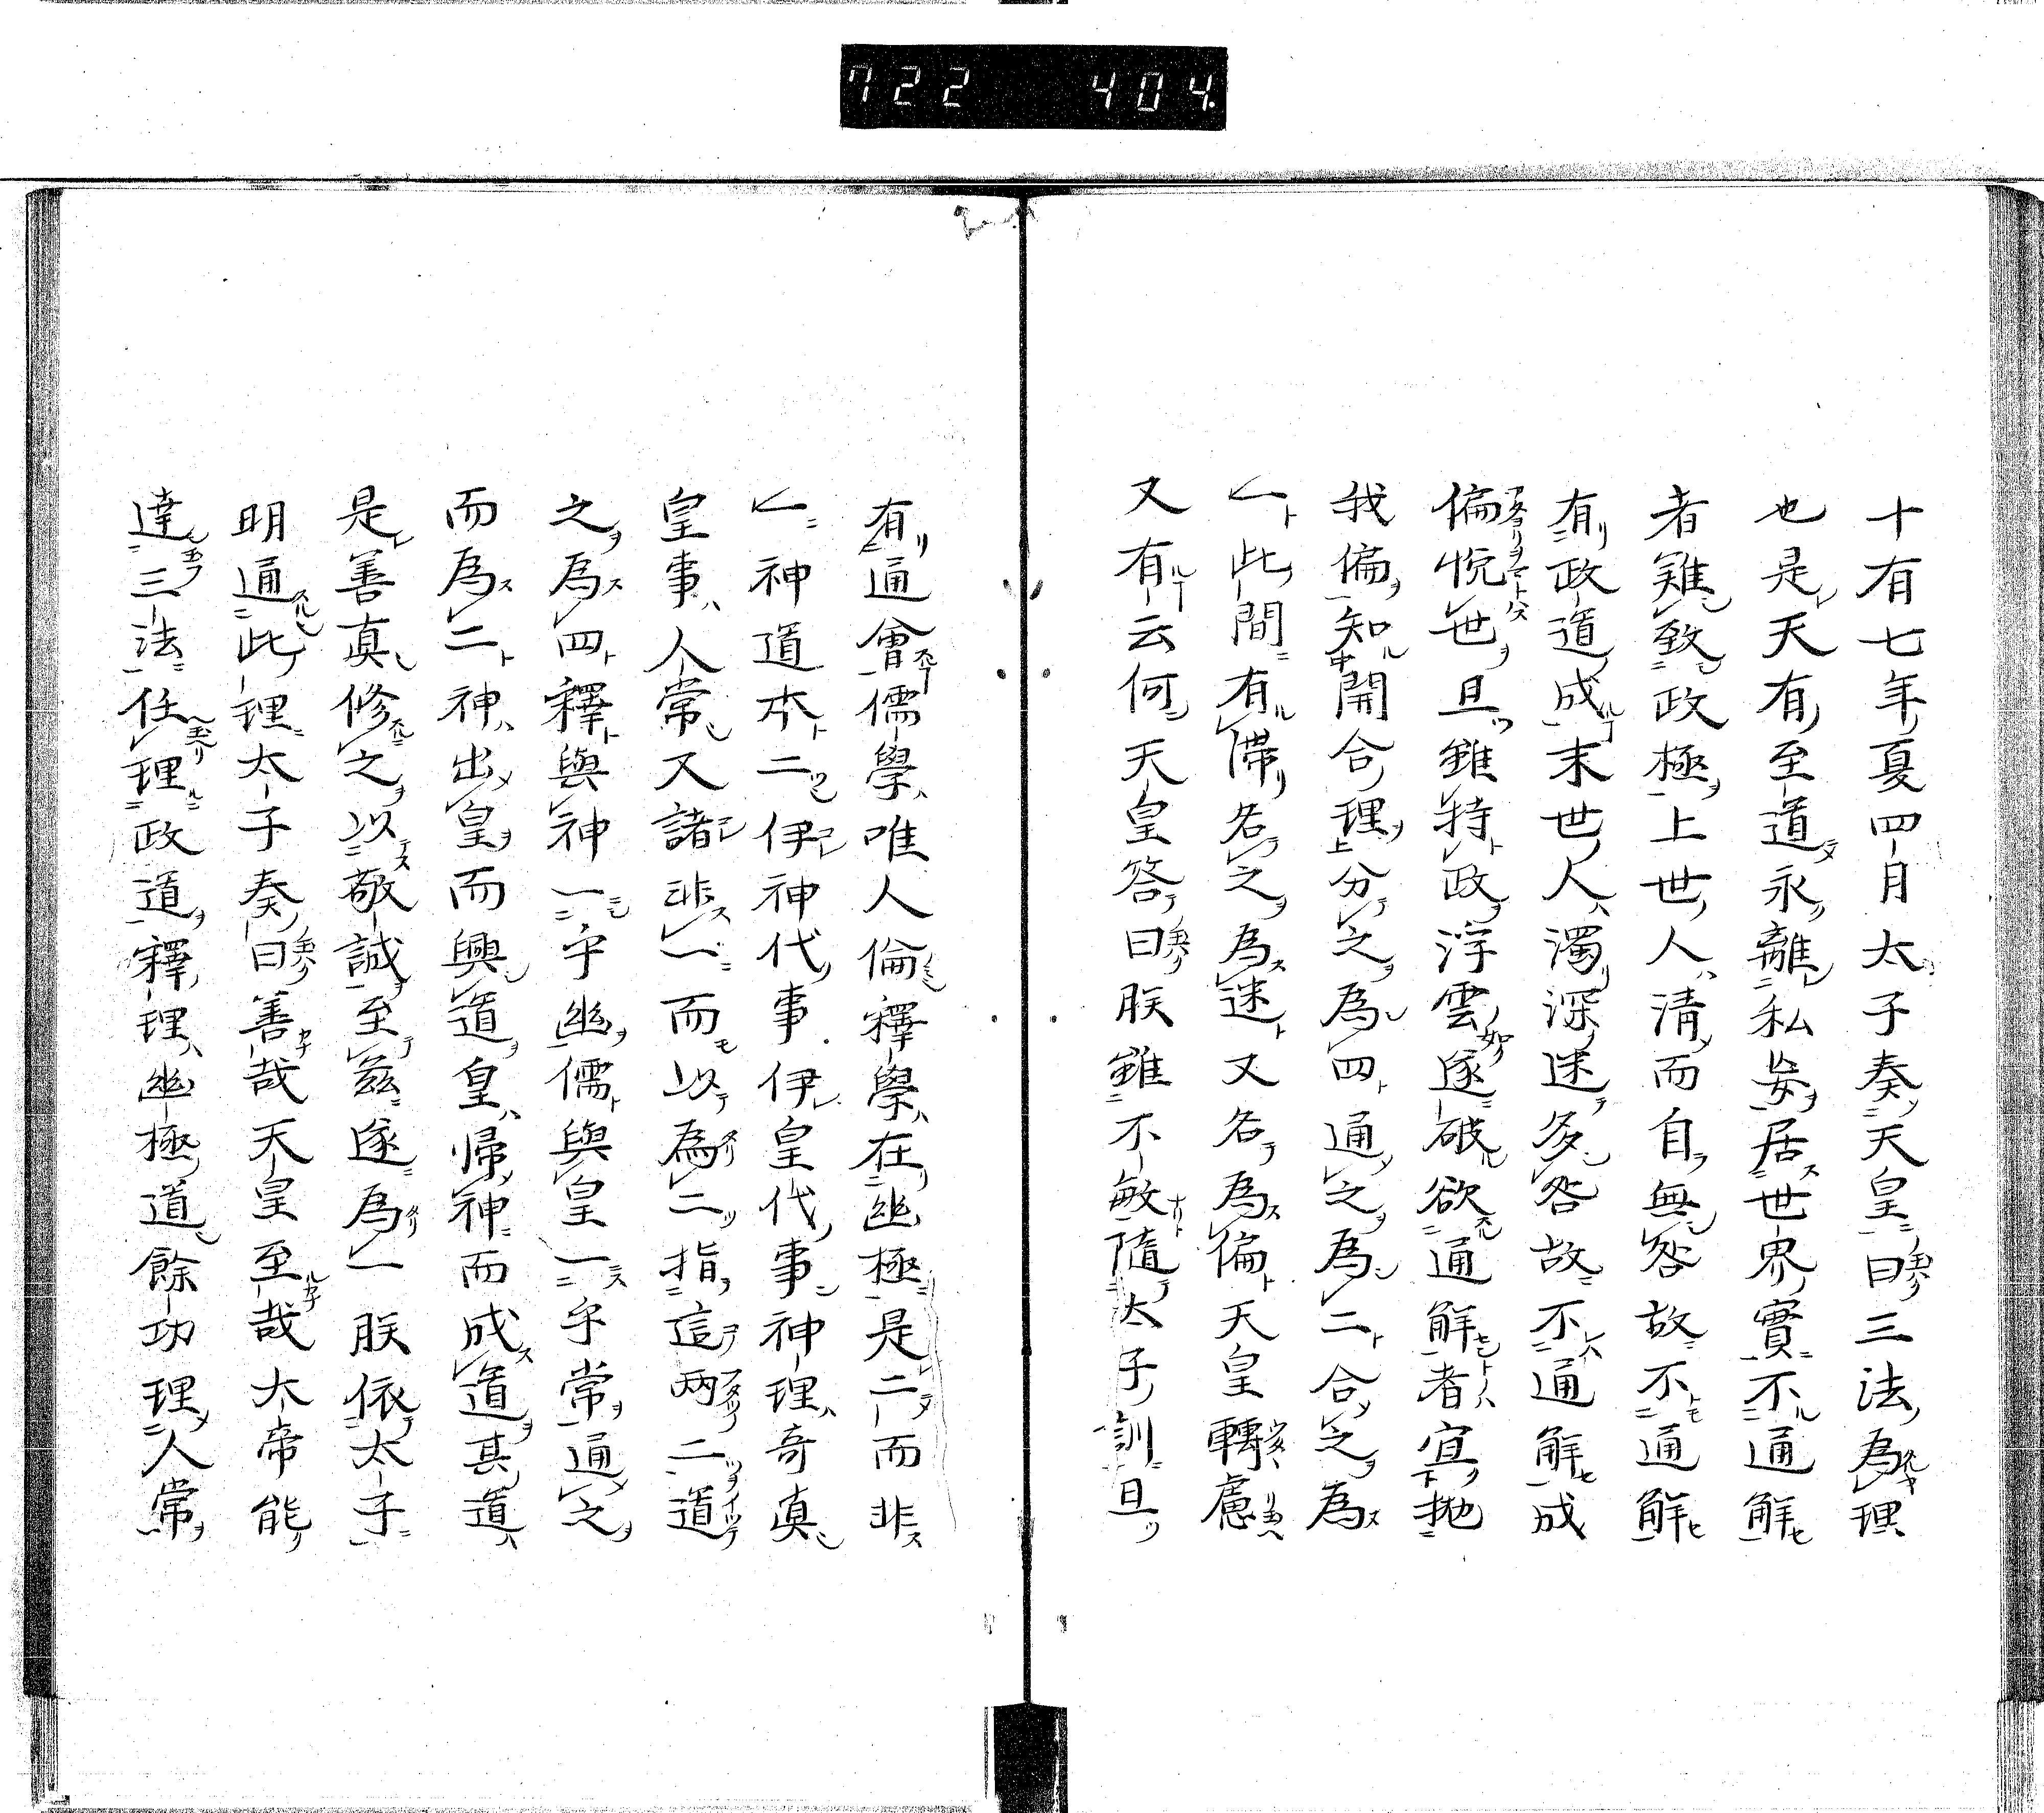 722 404
十有七年夏四月太子奏天皇曰三法為理
也是天有至道永離私妄居世界實不通解
者難致政極上世人清而自無咎故不通解
有政道成末世人濁深迷多咎故不通解成
偏悦世且雖持政浮雲遂破欲通解者宜抛
我偏知開合理分之為四通之為二合之為
一此間有滯名之為迷又名為偏天皇轉慮
又有云何天皇答曰朕雖不敏隨太子訓且
有通會儒學唯人倫釋學在幽極是二而非
一神道本二伊神代事伊皇代事神理奇真
皇事人常又諸非一而以為二指這兩二道
之為四釋與神一乎幽儒與皇一乎常通之
而為二神出皇而興道皇歸神而成道其道
是善真修之以敬誠至茲遂為一朕依太子
明通此理太子奏曰善哉天皇至哉大帝能
達三法任理政道釋理幽極道餘功理人常